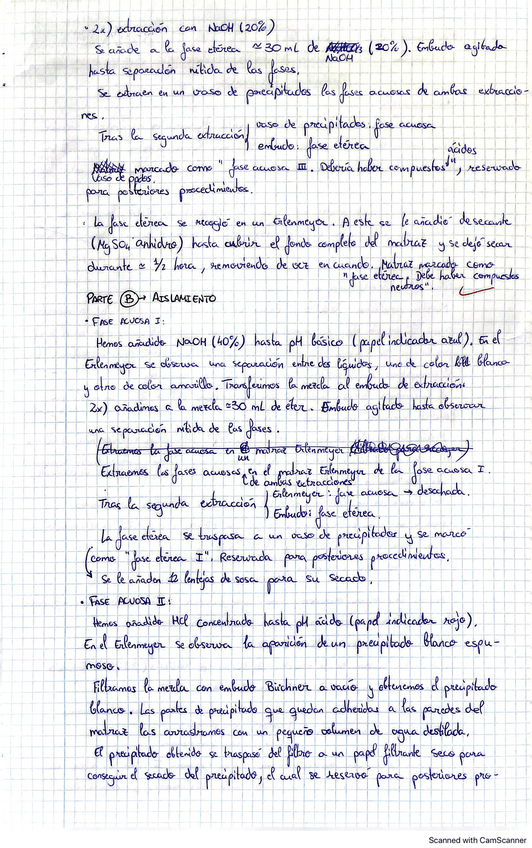 · 2x) extracción con NaOH (20%)
Se añade a la fase etérea ≃ 30 mL de NaOH (20%). Embudo agitado
hasta separación nítida de las fases.
Se extraen en un vaso de precipitados las fases acuosas de ambas extraccio-
nes.
Tras la segunda extracción vaso de precipitados: fase acuosa
embudo: fase etérea
Vaso de pptdos. marcado como "fase acuosa III. Debería haber compuestos ácidos", reservado
para posteriores procedimientos.
· La fase etérea se recogió en un Erlenmeyer. A este se le añadió desecante
(MgSO4 anhidro) hasta cubrir el fondo completo del matraz y se dejó secar
durante ≃ 1/2 hora, removiendo de vez en cuando. Matraz marcado como
"fase etérea. Debe haber compuestos
neutros".
PARTE B → AISLAMIENTO
· FASE ACUOSA I:
Hemos añadido NaOH (40%) hasta pH básico (papel indicador azul). En el
Erlenmeyer se observa una separación entre dos líquidos, uno de color blanco
y otro de color amarillo. Transferimos la mezcla al embudo de extracción:
2x) añadimos a la mezcla ≃30 mL de éter. Embudo agitado hasta observar
una separación nítida de las fases.
(Extraemos la fase acuosa en un matraz Erlenmeyer
Extraemos las fases acuosas de ambas extracciones en el matraz Erlenmeyer de la fase acuosa I.
Tras la segunda extracción Erlenmeyer: fase acuosa → desechada.
Embudo: fase etérea.
La fase etérea se traspasa a un vaso de precipitados y se marcó
como "fase etérea I". Reservada para posteriores procedimientos.
Se le añaden 12 lentejas de sosa para su secado.
· FASE ACUOSA II:
Hemos añadido HCl concentrado hasta pH ácido (papel indicador rojo).
En el Erlenmeyer se observa la aparición de un precipitado blanco espu-
moso.
Filtramos la mezcla con embudo Büchner a vacío y obtenemos el precipitado
blanco. Las partes de precipitado que quedan adheridas a las paredes del
matraz las arrastramos con un pequeño volumen de agua destilada.
El precipitado obtenido se traspasó del filtro a un papel filtrante seco para
conseguir el secado del precipitado, el cual se reservó para posteriores pro-
Scanned with CamScanner